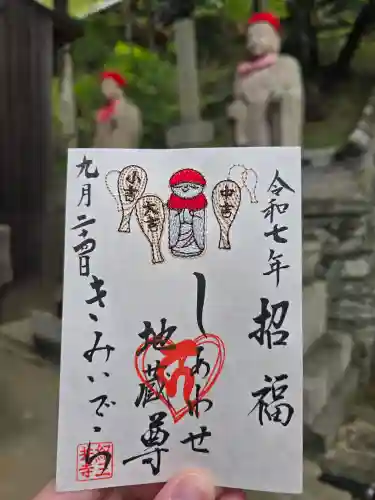 令和七年
招福
中吉
大吉
小吉
しあわせ
地蔵尊
九月二十四日
きみいでら